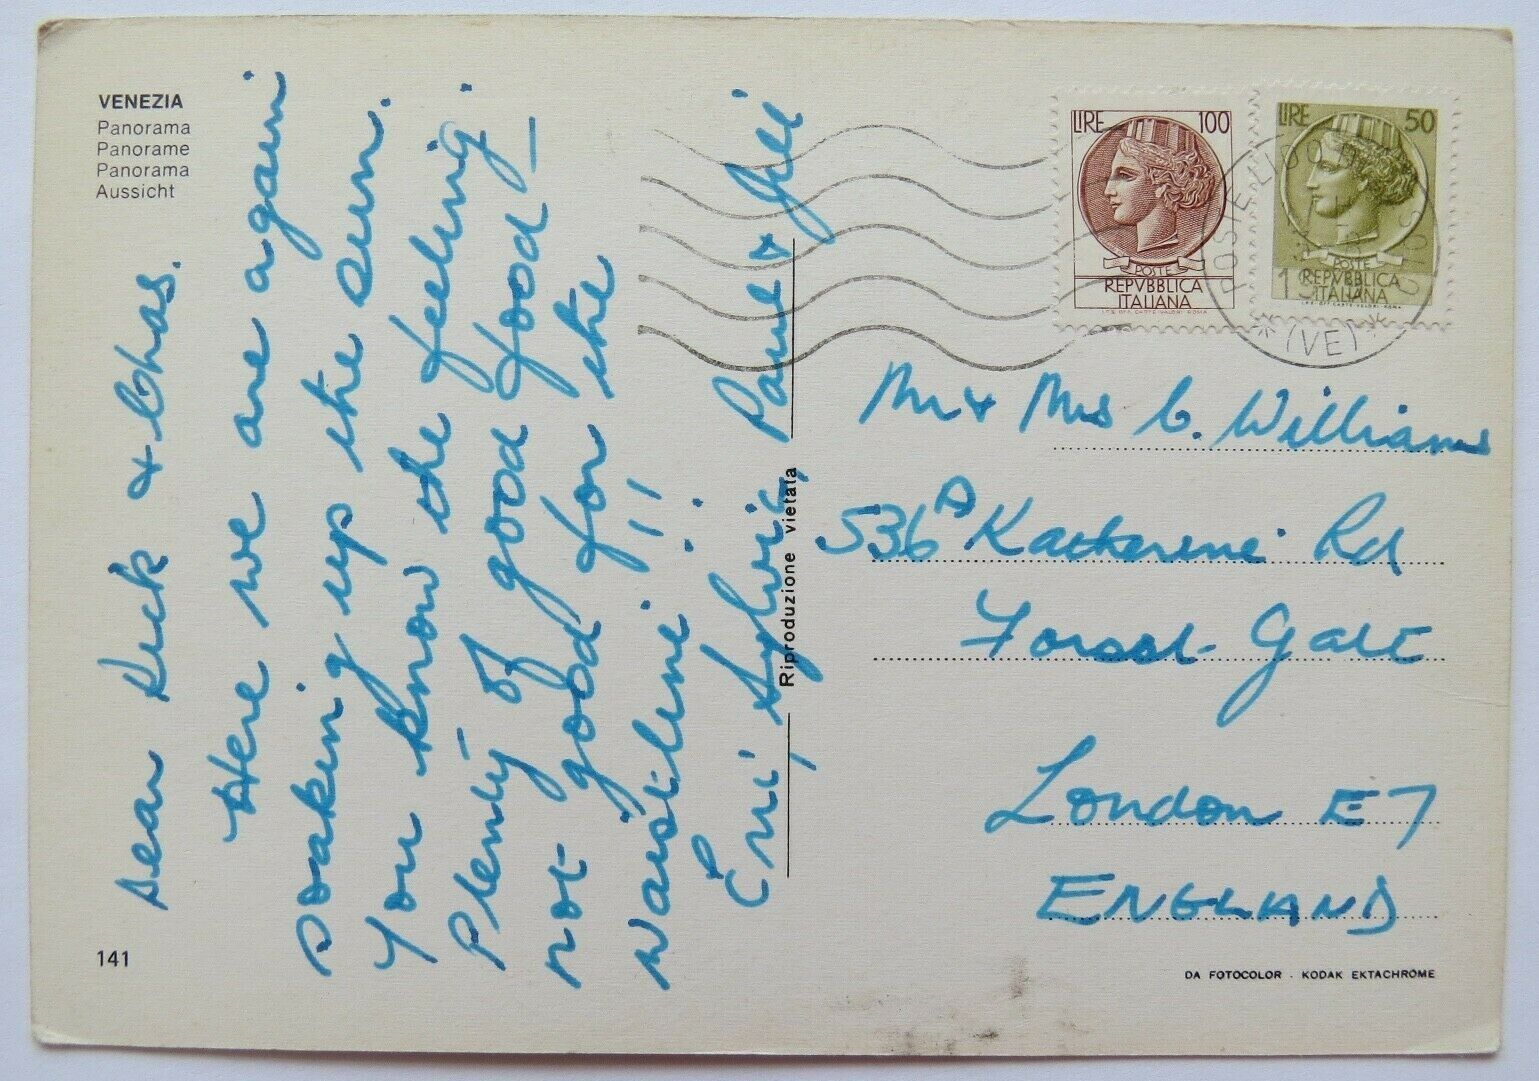 VENEZIA
Panorama
Panorame
Panorama
Aussicht
Dear Kick & Chas.
Here we are again
soaking up the sun.
You know the feeling
Plenty of good food -
not good for the
waistline!!
Eric, Sylvia, Paul & Jill
141
Riproduzione vietata
LIRE 100
POSTE
REPVBBLICA
ITALIANA
I.P.S. OFF. CARTE-VALORI ROMA
LIRE 50
POSTE
REPVBBLICA
ITALIANA
(VE)
Mr & Mrs C. Williams
536A Katherine Rd
Forest Gate
London E7
ENGLAND
DA FOTOCOLOR - KODAK EKTACHROME